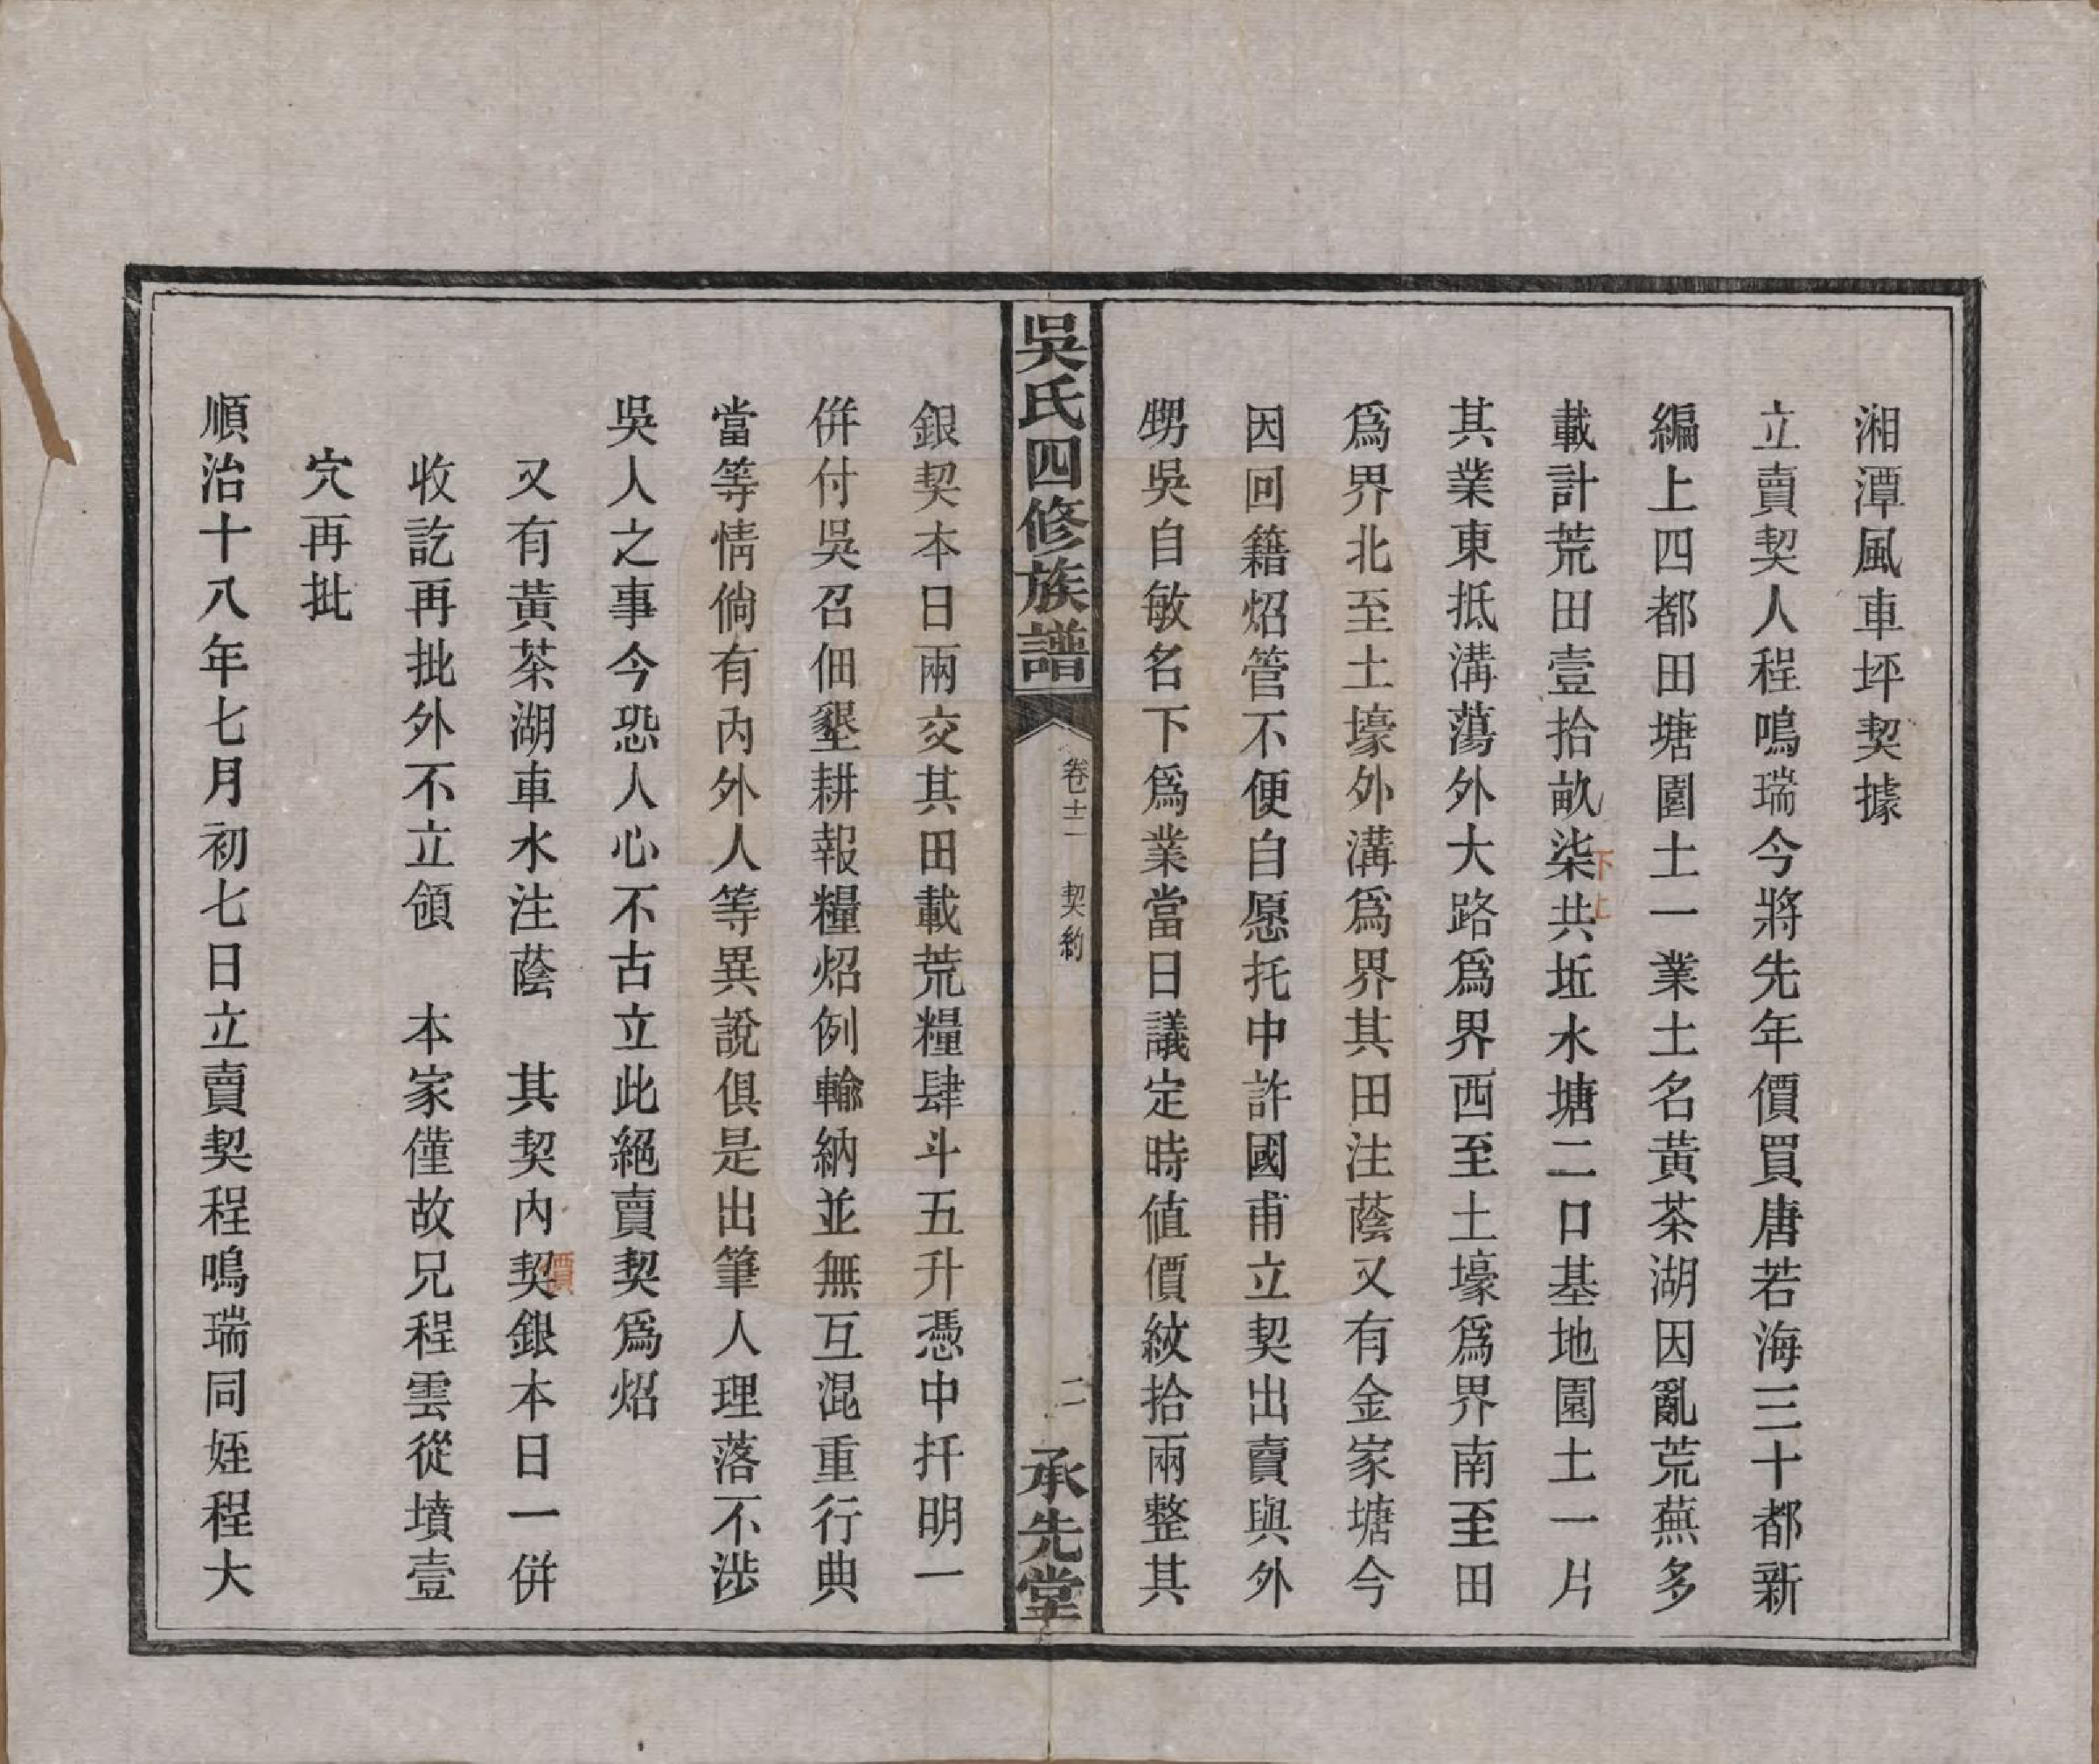 湘潭風車坪契據
立賣契人程鳴瑞今將先年價買唐若海三十都新
編上四都田塘園土一業土名黃茶湖因亂荒蕪多
載計荒田壹拾畝柒共坵水塘二口基地園土一片
下上
其業東抵溝蕩外大路爲界西至土壕爲界南至田
爲界北至土壕外溝爲界其田注蔭又有金家塘今
因回籍炤管不便自愿托中許國甫立契出賣與外
甥吳自敏名下爲業當日議定時值價紋拾兩整其
吳氏四修族譜
卷十二 契約
二
承先堂
銀契本日兩交其田載荒糧肆斗五升憑中扦明一
併付吳召佃墾耕報糧炤例輸納並無互混重行典
當等情倘有內外人等異說俱是出筆人理落不涉
吳人之事今恐人心不古立此絕賣契爲炤
又有黃茶湖車水注蔭 其契內契銀本日一併
價
收訖再批外不立領 本家僅故兄程雲從墳壹
穴再批
順治十八年七月初七日立賣契程鳴瑞同姪程大